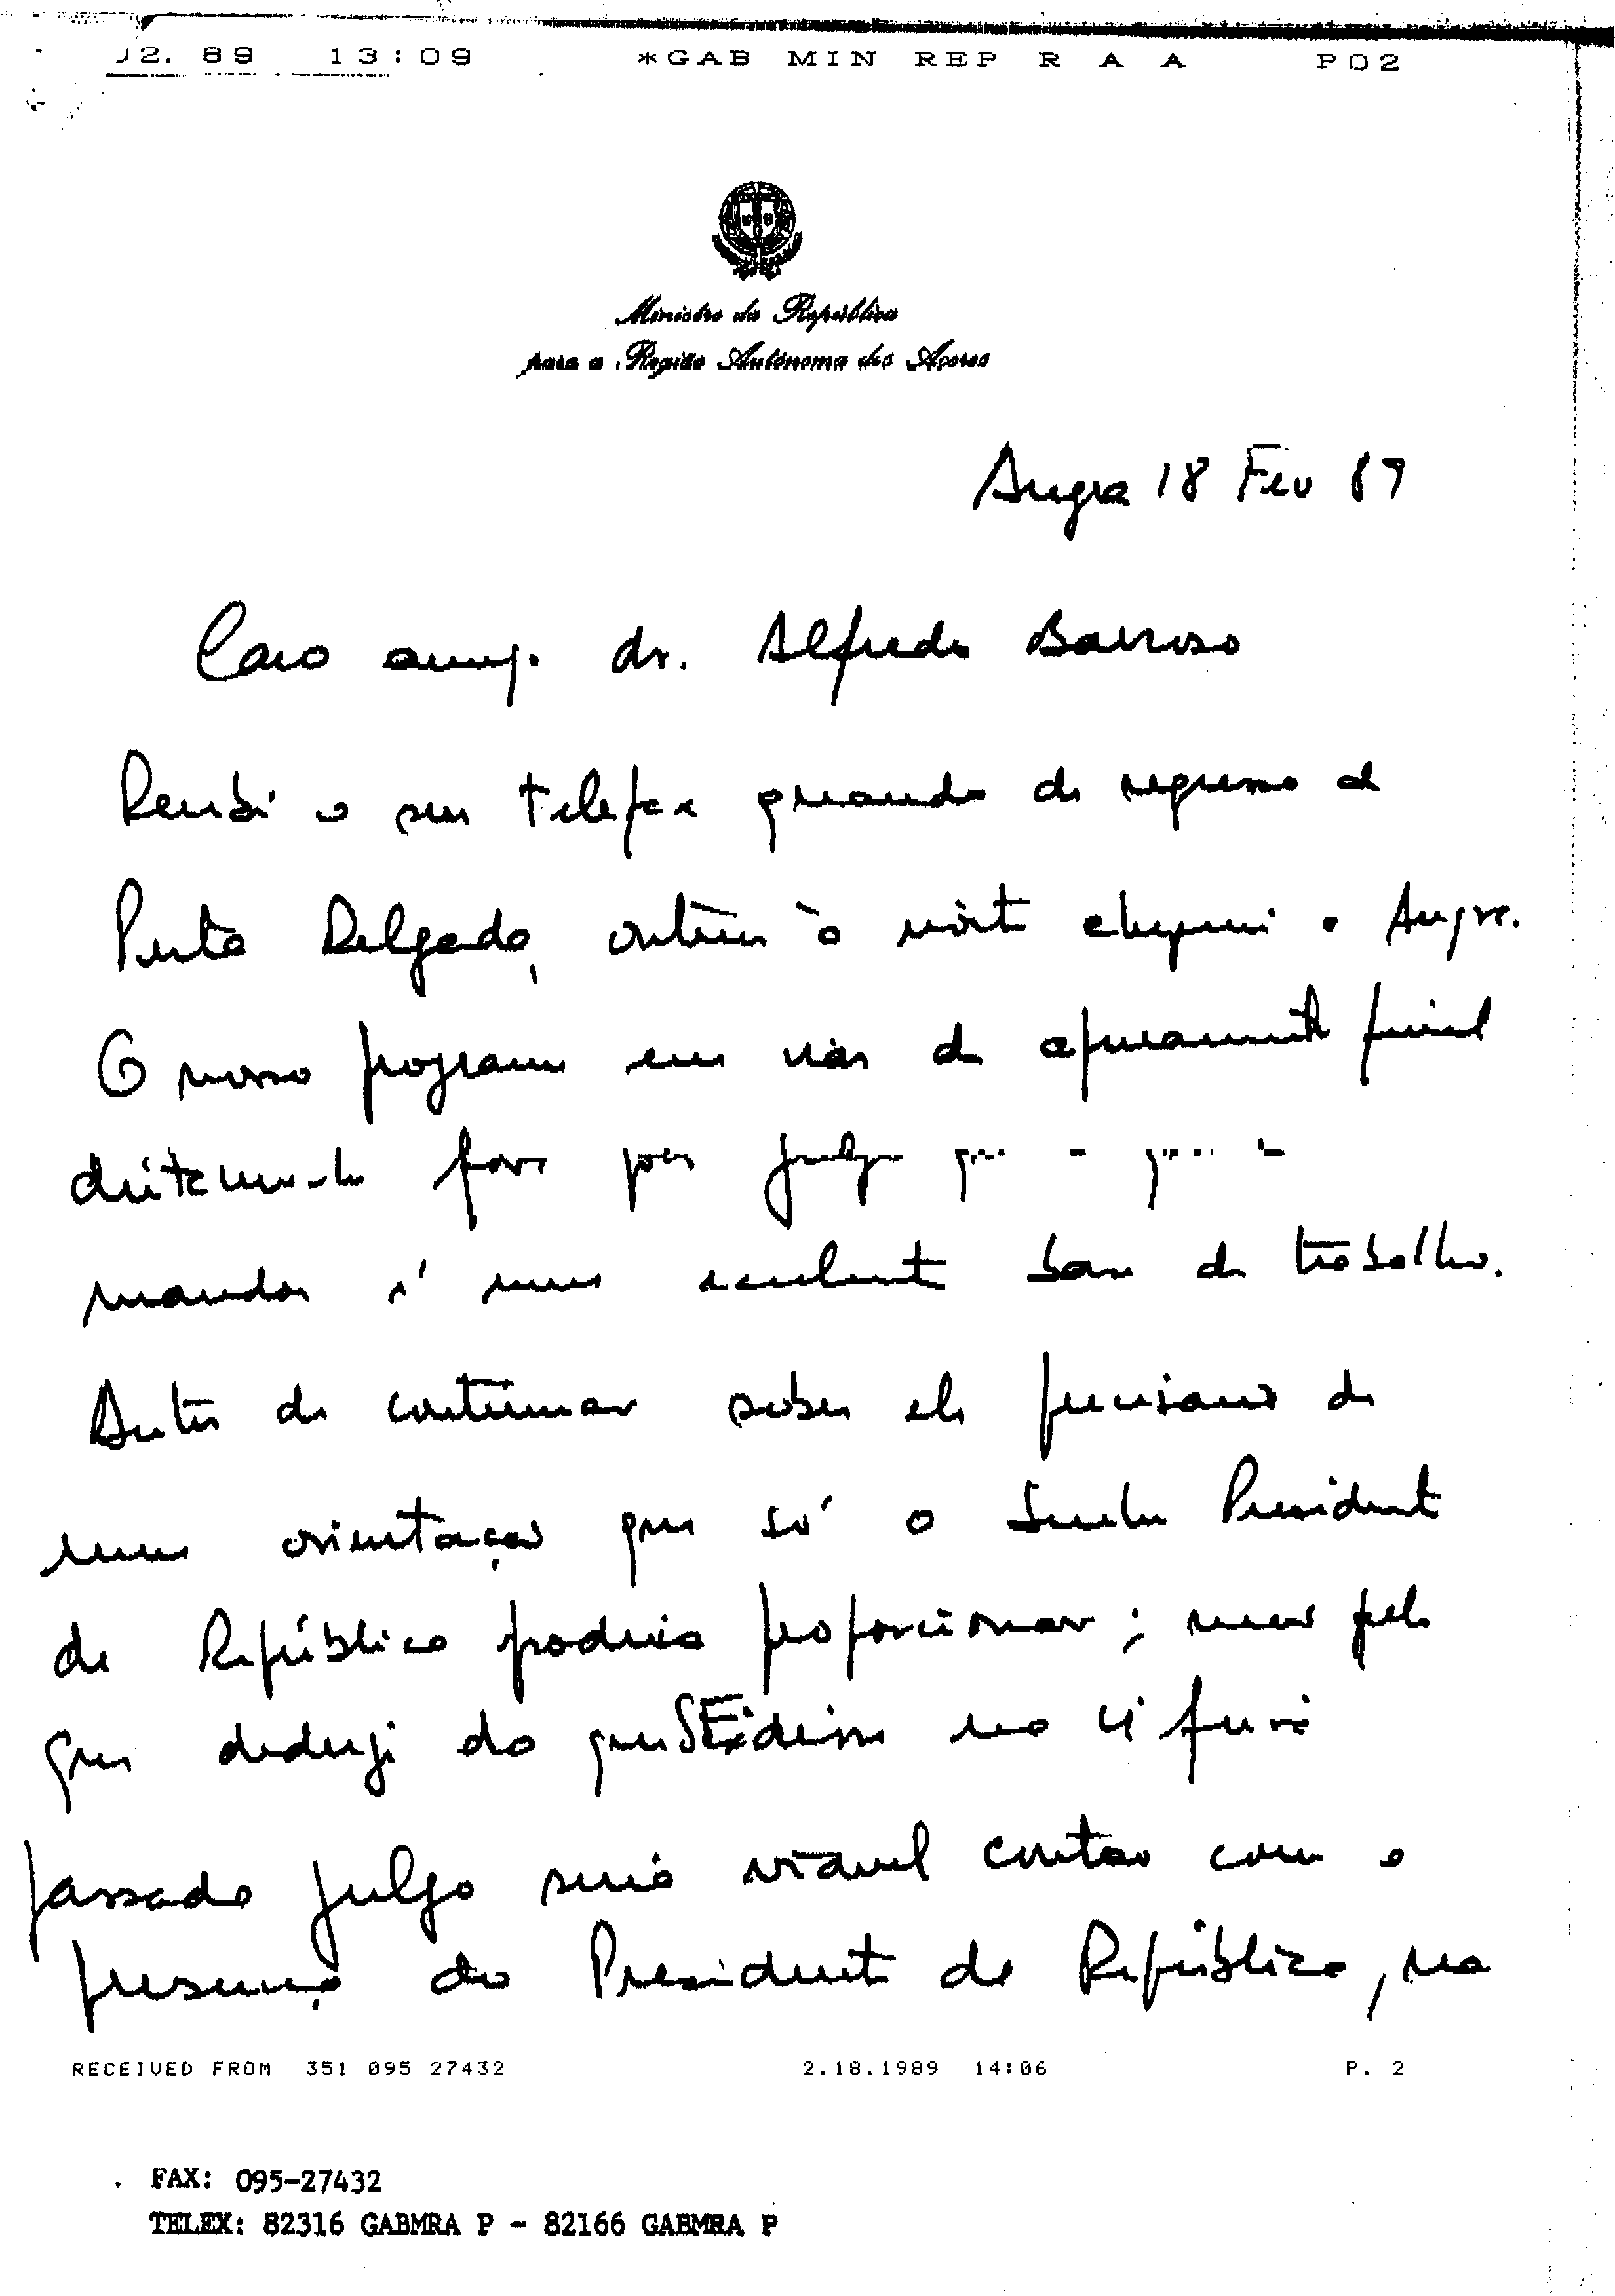 02. 89 13:09 *GAB MIN REP R A A P02
Ministro da República
para a Região Autónoma dos Açores
Angra 18 Fev 89
Caro amigo dr. Alfredo Barroso
Recebi o seu telefax quando de regresso de
Ponta Delgada, ontem à noite cheguei a Angra.
O nosso programa em vias de apuramento final
pois julgo que o que
mandou é uma excelente base de trabalho.
Antes de continuar sobre ele precisamos de
uma orientação que só o Senhor Presidente
da República poderia proporcionar; mas pelo
que deduzi do que S Exa disse na 4ª feira
passada julgo seria viável contar com a
presença do Presidente da República, na
RECEIVED FROM 351 095 27432 2.18.1989 14:06 P. 2
FAX: 095-27432
TELEX: 82316 GABMRA P - 82166 GABMRA P